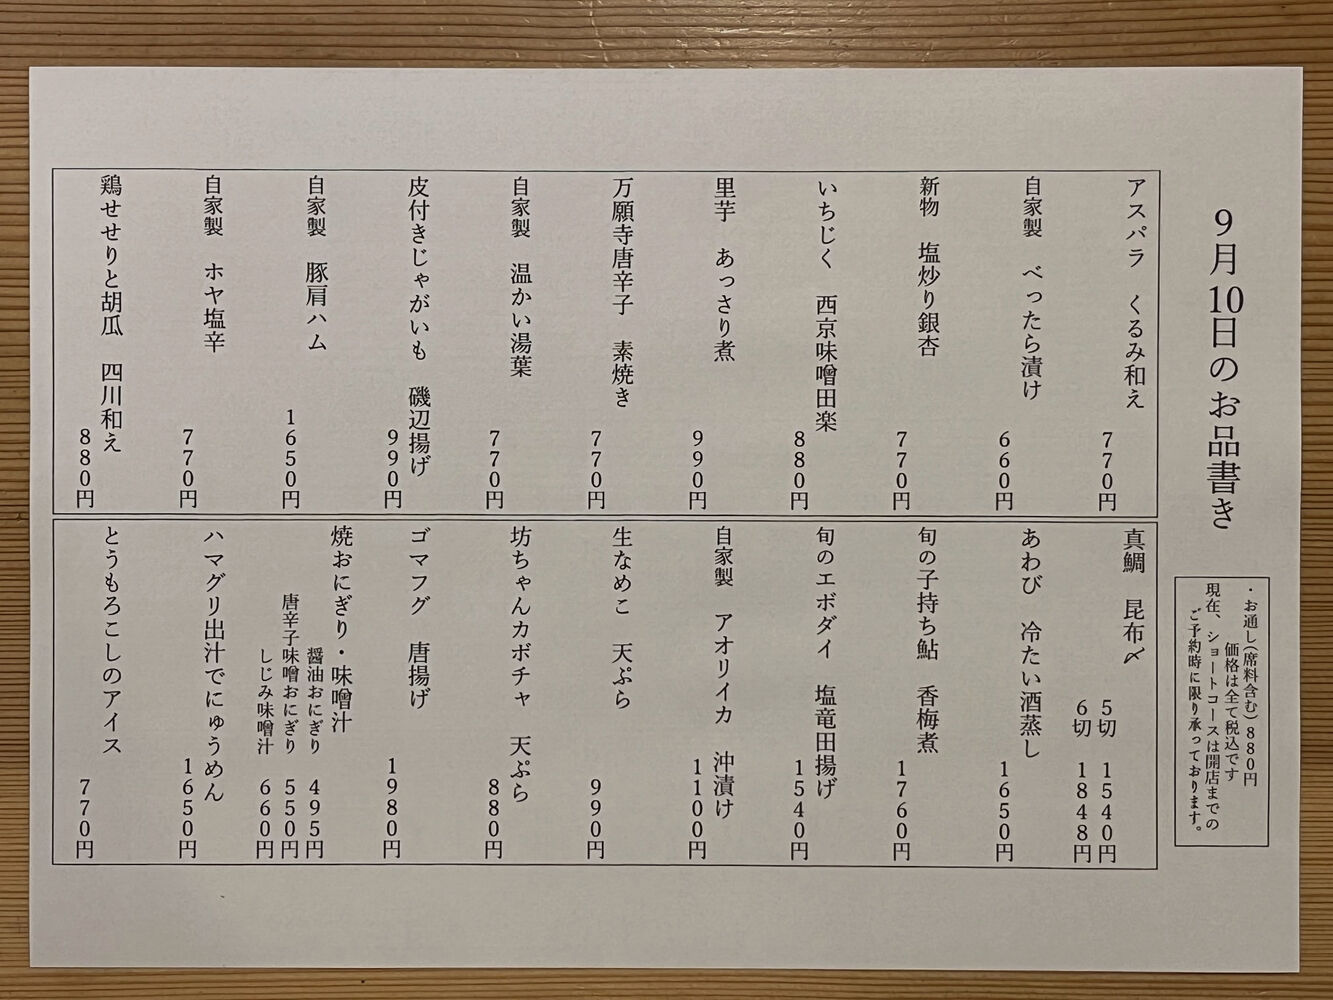 9月10日のお品書き
・お通し(席料含む)880円
価格は全て税込です
現在、ショートコースは開店までの
ご予約時に限り承っております。
アスパラ　くるみ和え
770円
自家製　べったら漬け
660円
新物　塩炒り銀杏
770円
いちじく　西京味噌田楽
880円
里芋　あっさり煮
990円
万願寺唐辛子　素焼き
770円
自家製　温かい湯葉
770円
皮付きじゃがいも　磯辺揚げ
990円
自家製　豚肩ハム
1650円
自家製　ホヤ塩辛
770円
鶏せせりと胡瓜　四川和え
880円
真鯛　昆布〆
5切　1540円
6切　1848円
あわび　冷たい酒蒸し
1650円
旬の子持ち鮎　香梅煮
1760円
旬のエボダイ　塩竜田揚げ
1540円
自家製　アオリイカ　沖漬け
1100円
生なめこ　天ぷら
990円
坊ちゃんカボチャ　天ぷら
880円
ゴマフグ　唐揚げ
1980円
焼おにぎり・味噌汁
醤油おにぎり　495円
唐辛子味噌おにぎり　550円
しじみ味噌汁　660円
ハマグリ出汁でにゅうめん
1650円
とうもろこしのアイス
770円